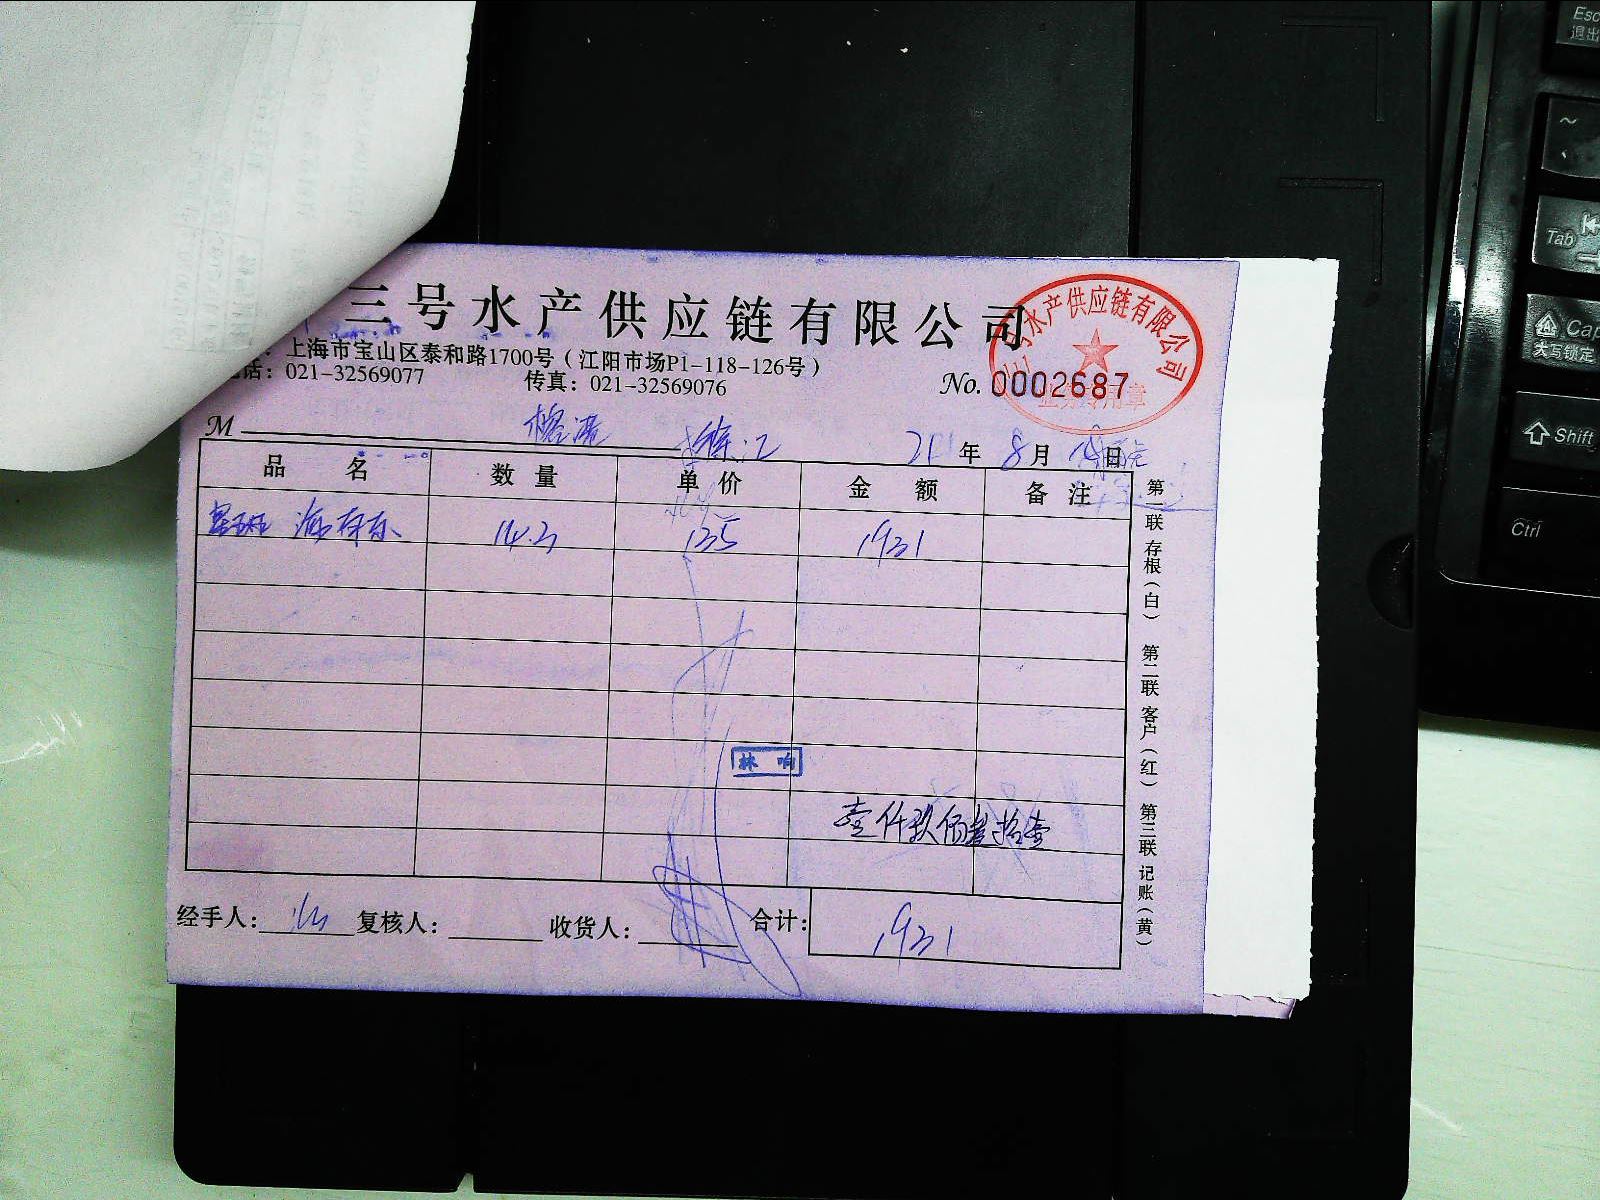 三号水产供应链有限公司
：上海市宝山区泰和路1700号（江阳市场P1-118-126号）
话：021-32569077 传真：021-32569076
No. 0002687
号水产供应链有限公司
业务专用章
M
21 年 8 月 日
品 名 数 量 单 价 金 额 备 注
14.3 135 1931
林 响
壹仟玖佰叁拾壹
经手人： 复核人： 收货人： 合计： 1931
第一联 存根（白） 第二联 客户（红） 第三联 记账（黄）
Esc
退出
~
Tab
Cap
大写锁定
Shift
Ctrl